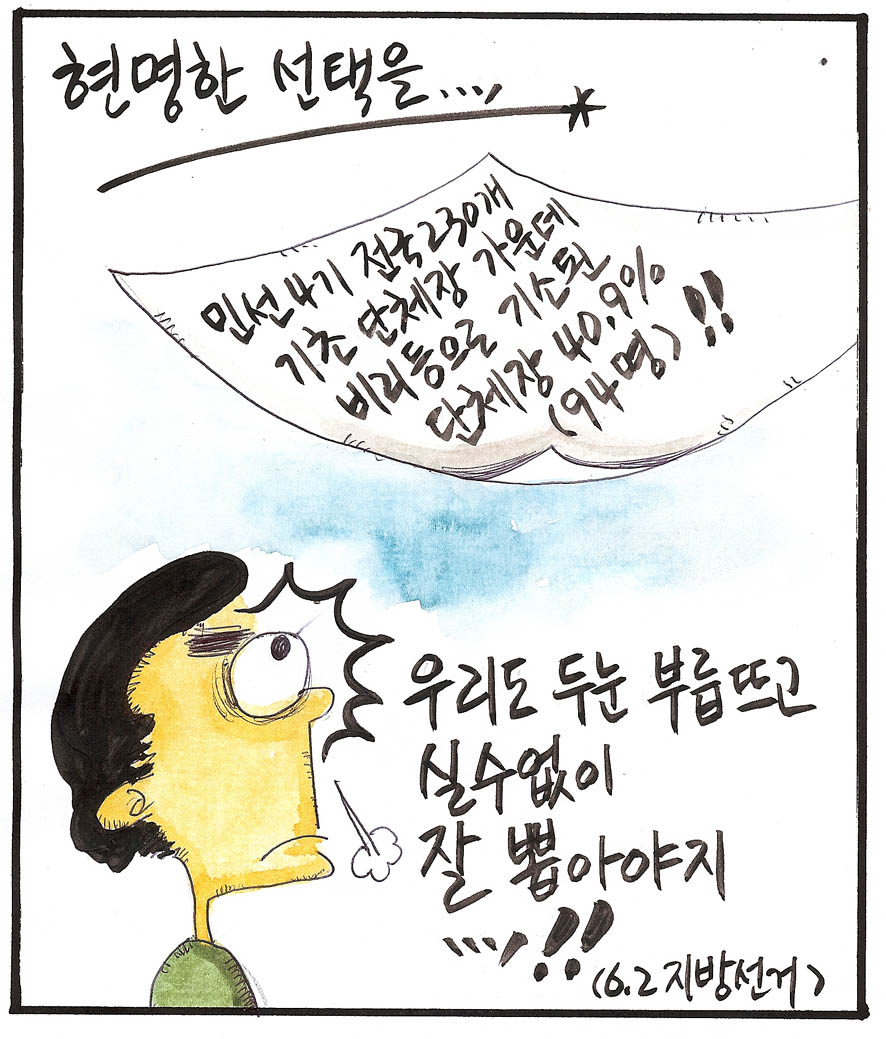 현명한 선택을....,
민선4기 전국230개
기초 단체장 가운데
비리등으로 기소된
단체장 40.9%
(94명)!!
우리도 두눈 부릅뜨고
실수없이
잘 뽑아야지
....,!!
(6.2 지방선거)